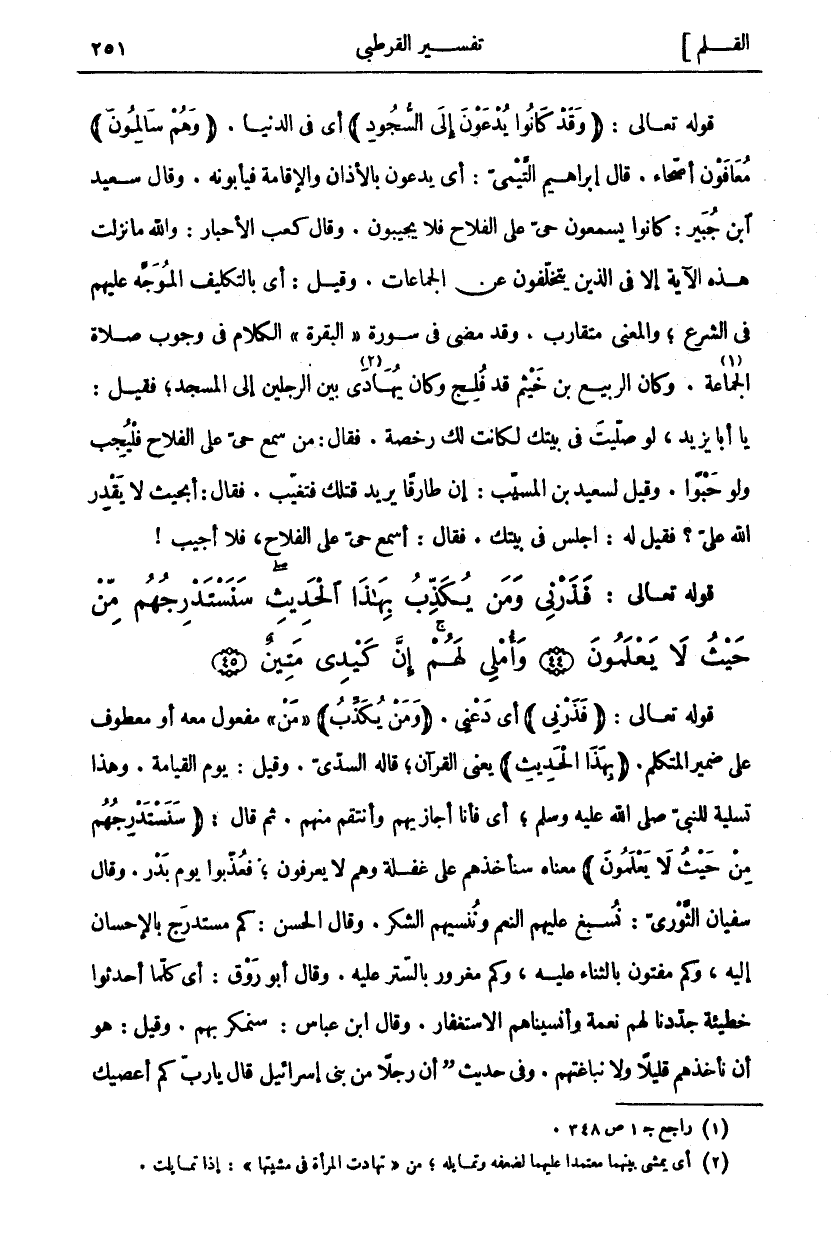 القـلـم ] تفســير القرطبى ٢٥١
قوله تعـالى : ﴿ وَقَدْ كَانُوا يُدْعَوْنَ إِلَى السُّجُودِ ﴾ أى فى الدنيـا . ﴿ وَهُمْ سَالِمُونَ ﴾
مُعَافَوْن أصحّاء . قال إبراهـيم التَّيْمىّ : أى يدعون بالأذان والإقامة فيأبونه . وقال سـعيد
آبن جُبَير : كانوا يسمعون حىّ على الفلاح فلا يجيبون . وقال كعب الأحبار : والله ما نزلت
هـذه الآية إلا فى الذين يتخلّفون عن الجماعات . وقيـل : أى بالتكليف الموَجَّه عليهم
فى الشرع ؛ والمعنى متقارب . وقد مضى فى سـورة « البقرة » الكلام فى وجوب صـلاة
الجماعة (١) . وكان الربيـع بن خَيْثم قد فُلِـج وكان يُهَـادَى (٢) بين الرجلين إلى المسجد ؛ فقيـل :
يا أبا يزيد ، لو صلّيتَ فى بيتك لكانت لك رخصة . فقال : من سمع حىّ على الفلاح فَلْيُجِب
ولو حَبْوًا . وقيل لسعيد بن المسيّب : إن طارقًا يريد قتلك فتغيّب . فقال : أبحيث لا يَقْدِر
الله علىّ ؟ فقيل له : اجلس فى بيتك . فقال : أسمع حىّ على الفلاح ، فلا أجيب !
قوله تعـالى : فَذَرْنِى وَمَن يُكَذِّبُ بِهَـٰذَا ٱلْحَدِيثِ ۖ سَنَسْتَدْرِجُهُم مِّنْ
حَيْثُ لَا يَعْلَمُونَ ﴿٤٤﴾ وَأُمْلِى لَهُمْ ۚ إِنَّ كَيْدِى مَتِينٌ ﴿٤٥﴾
قوله تعـالى : ﴿ فَذَرْنِى ﴾ أى دَعْنِى . ﴿ وَمَنْ يُكَذِّبُ ﴾ «مَنْ» مفعول معه أو معطوف
على ضمير المتكلم . ﴿ بِهَذَا الْحَدِيثِ ﴾ يعنى القرآن ؛ قاله السدّىّ . وقيل : يوم القيامة . وهذا
تسلية للنبىّ صلى الله عليه وسلم ؛ أى فأنا أجازيهم وأنتقم منهم . ثم قال : ﴿ سَنَسْتَدْرِجُهُم
مِنْ حَيْثُ لَا يَعْلَمُونَ ﴾ معناه سنأخذهم على غفـلة وهم لا يعرفون ؛ فعُذّبوا يوم بَدْر . وقال
سفيان الثَّوْرىّ : نُسـبغ عليهم النعم ونُنسيهم الشكر . وقال الحسن : كم مستدرَج بالإحسان
إليه ، وكم مفتون بالثناء عليـه ، وكم مغرور بالسّتر عليه . وقال أبو رَوْق : أى كلّما أحدثوا
خطيئة جدّدنا لهم نعمة وأنسيناهم الاستغفار . وقال ابن عباس : سنمكر بهم . وقيل : هو
أن نأخذهم قليلًا ولا نباغتهم . وفى حديث ” أن رجلًا من بنى إسرائيل قال يا ربّ كم أعصيك
(١) راجع جـ ١ ص ٣٤٨ .
(٢) أى يمشى بينهما معتمدا عليهما لضعفه وتمايله ؛ من « تهادت المرأة فى مشيتها » : إذا تمـايلت .